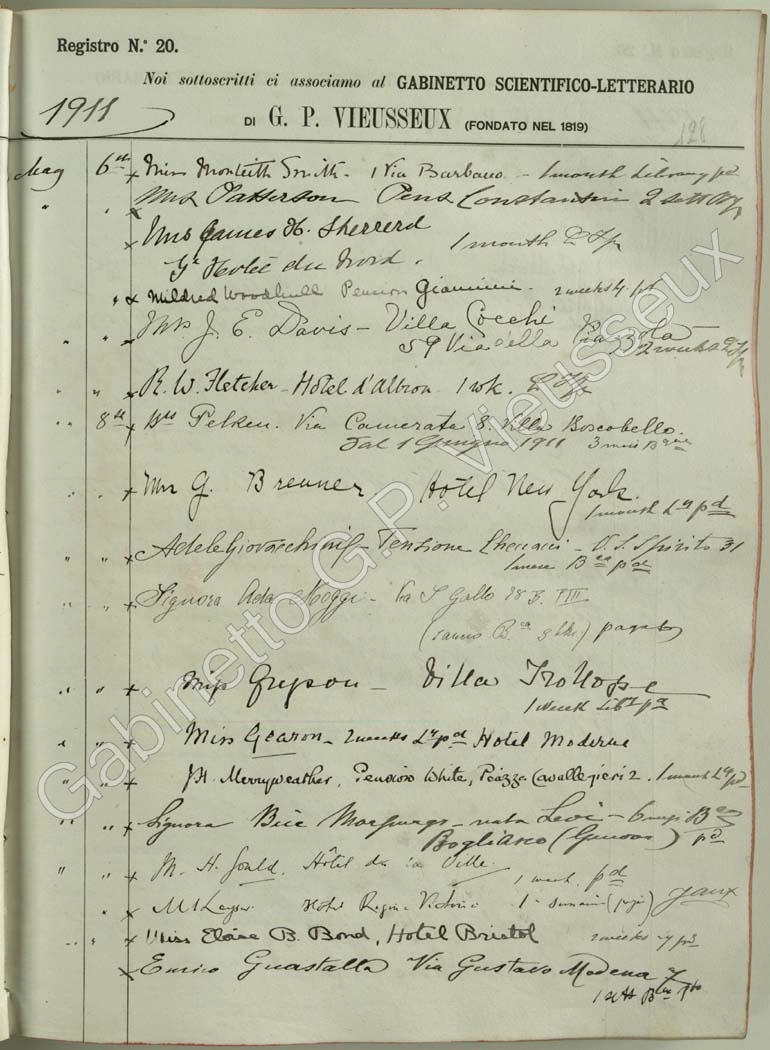 Registro N.° 20.
Noi sottoscritti ci associamo al GABINETTO SCIENTIFICO-LETTERARIO
1911
DI G. P. VIEUSSEUX (FONDATO NEL 1819)
128
Mag 6 Miss Monteith Smith - 1 Via Barbano - 1 month Library pd
" " Mrs Patterson Pens Constantin 2 sett
Mrs James H. Sherrerd 1 month
Gd Hotel du Nord.
" Mildred Woodhull Pension Giannini. 2 weeks pd
" " Mrs J. E. Davis - Villa Cocchi
59 Via della Piazzola - 2 weeks
" " R. W. Fletcher - Hôtel d'Albion 1 wk.
" " 8 Pelken. Via Camerata 8. Villa Boscobello.
Dal 1 Giugno 1911 3 mois
" " Mrs G. Brenner Hotel New York.
1 month Ly pd
" " Adele Giovacchini - Pensione - V. S. Spirito 31
1 mese Bca pd
" " Signora Ada Moggi - Via S Gallo 28 B. III
(1 anno B.ca 3 libri)
" " Miss Grepson - Villa Trollope
1 week Liby pd
" " Miss Gearon - 2 weeks Ly pd Hotel Moderne
" " Merryweather, Pension White, Piazza Cavallegieri 2. 1 month Ly pd
" " Signora Bice Morpurgo - nata Levi - 6 mesi Bca
Bogliasco (Genova) pd
" " M. H. Gould, Hôtel de la Ville. 1 week. pd
" Hotel Regina Victoria 1
" " Miss Eloise B. Bond, Hotel Bristol 2 weeks
Enrico Guastalla Via Gustavo Modena 7
1 sett
Gabinetto G.P. Vieusseux